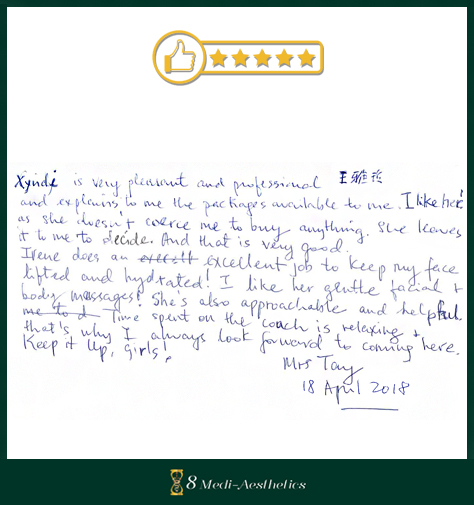 Xyndi is very pleasant and professional 王雅
and explains to me the packages available to me. I like her
as she doesn't coerce me to buy anything. She leaves
it to me to decide. And that is very good.
Irene does an excellent job to keep my face
lifted and hydrated! I like her gentle facial +
body massages! She's also approachable and helpful.
me to d Time spent on the couch is relaxing +
that's why I always look forward to coming here.
Keep it up, Girls!
Mrs Tay
18 April 2018
8 Medi-Aesthetics